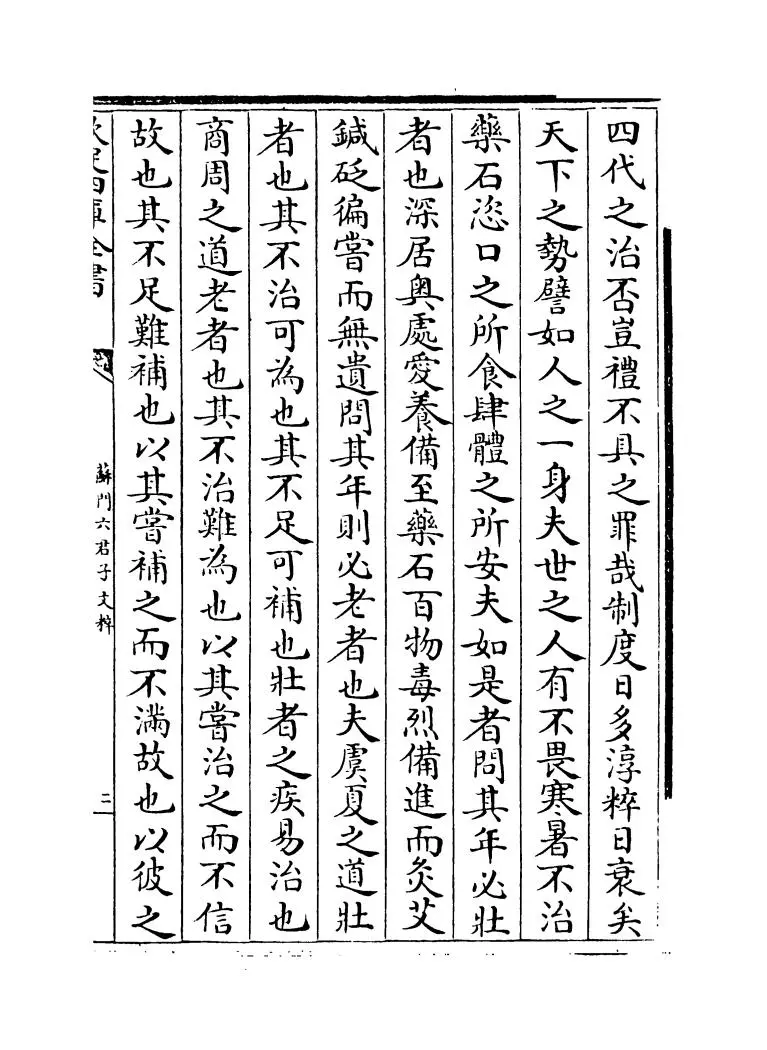 四代之治否豈禮不具之罪哉制度日多淳粹日衰矣
天下之勢譬如人之一身夫世之人有不畏寒暑不治
藥石恣口之所食肆體之所安夫如是者問其年必壯
者也深居奧處愛養備至藥石百物毒烈備進而灸艾
鍼砭徧嘗而無遺問其年則必老者也夫虞夏之道壯
者也其不治可為也其不足可補也壯者之疾易治也
商周之道老者也其不治難為也以其嘗治之而不信
故也其不足難補也以其嘗補之而不滿故也以彼之
欽定四庫全書
蘇門六君子文粹
二